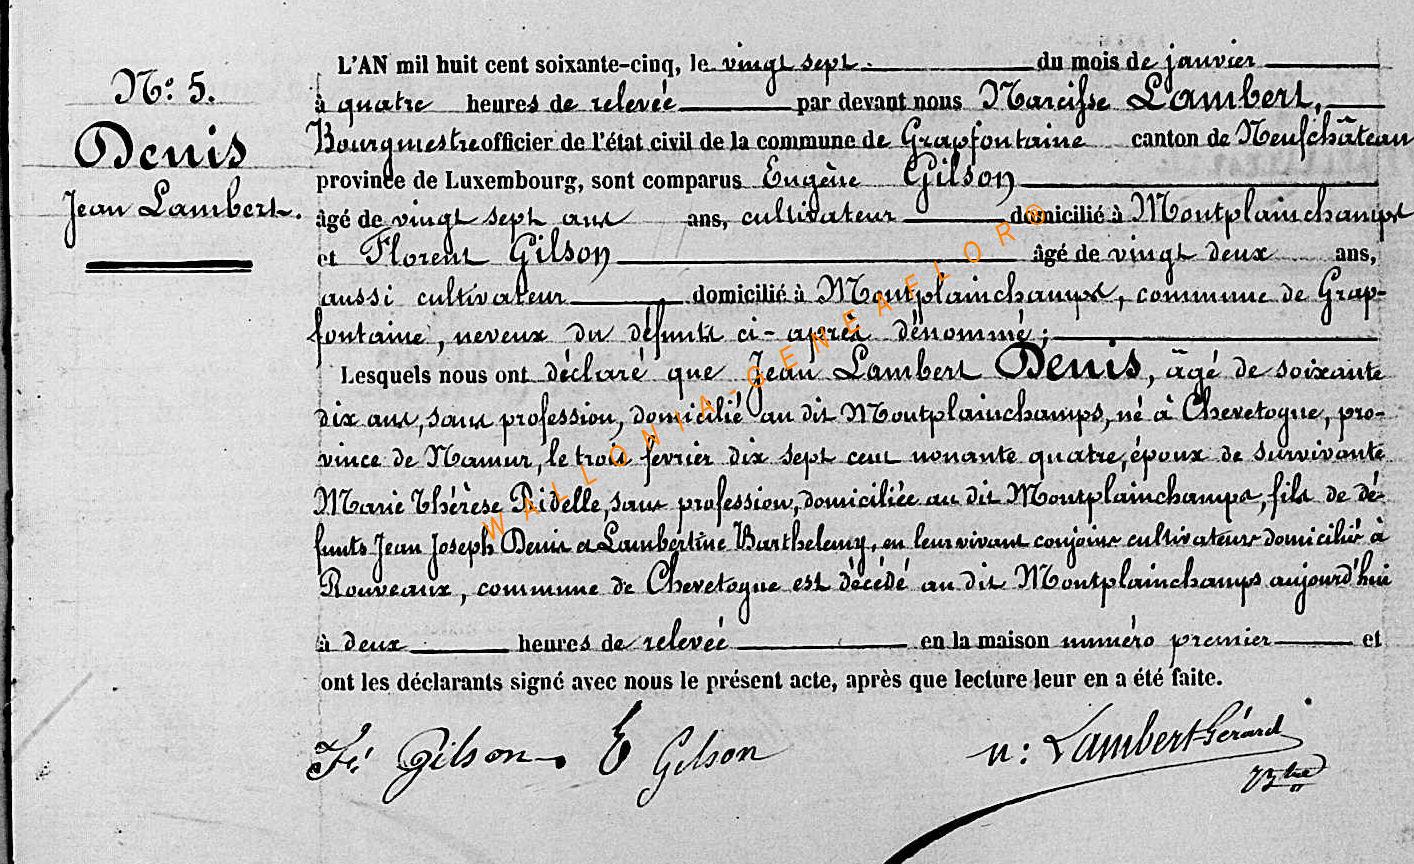 N°: 5.
Denis
Jean Lambert.
L'AN mil huit cent soixante-cinq, le vingt sept du mois de janvier
à quatre heures de relevée par devant nous Narcisse Lambert,
Bourgmestre officier de l'état civil de la commune de Grapfontaine canton de Neufchâteau
province de Luxembourg, sont comparus Eugène Gilson
âgé de vingt sept ans ans, cultivateur domicilié à Montplainchamps
et Florent Gilson âgé de vingt deux ans,
aussi cultivateur domicilié à Montplainchamps, commune de Grap-
fontaine, neveux du défunt ci-après dénommé;
Lesquels nous ont déclaré que Jean Lambert Denis, âgé de soixante
dix ans, sans profession, domicilié au dit Montplainchamps, né à Chevetogne, pro-
vince de Namur, le trois fevrier dix sept cent nonante quatre, époux de survivante
Marie Thérèse Ridelle, sans profession, domiciliée au dit Montplainchamps, fils de dé-
funts Jean Joseph Denis et Lambertine Barthelemy, en leur vivant conjoins cultivateurs domiciliés à
Rouveaux, commune de Chevetogne est décédé au dit Montplainchamps aujourd'hui
à deux heures de relevée en la maison numéro premier et
ont les déclarants signé avec nous le présent acte, après que lecture leur en a été faite.
Ft Gilson. E Gilson n: Lambert Gérard
WALLONIA-GENEAFLOR®